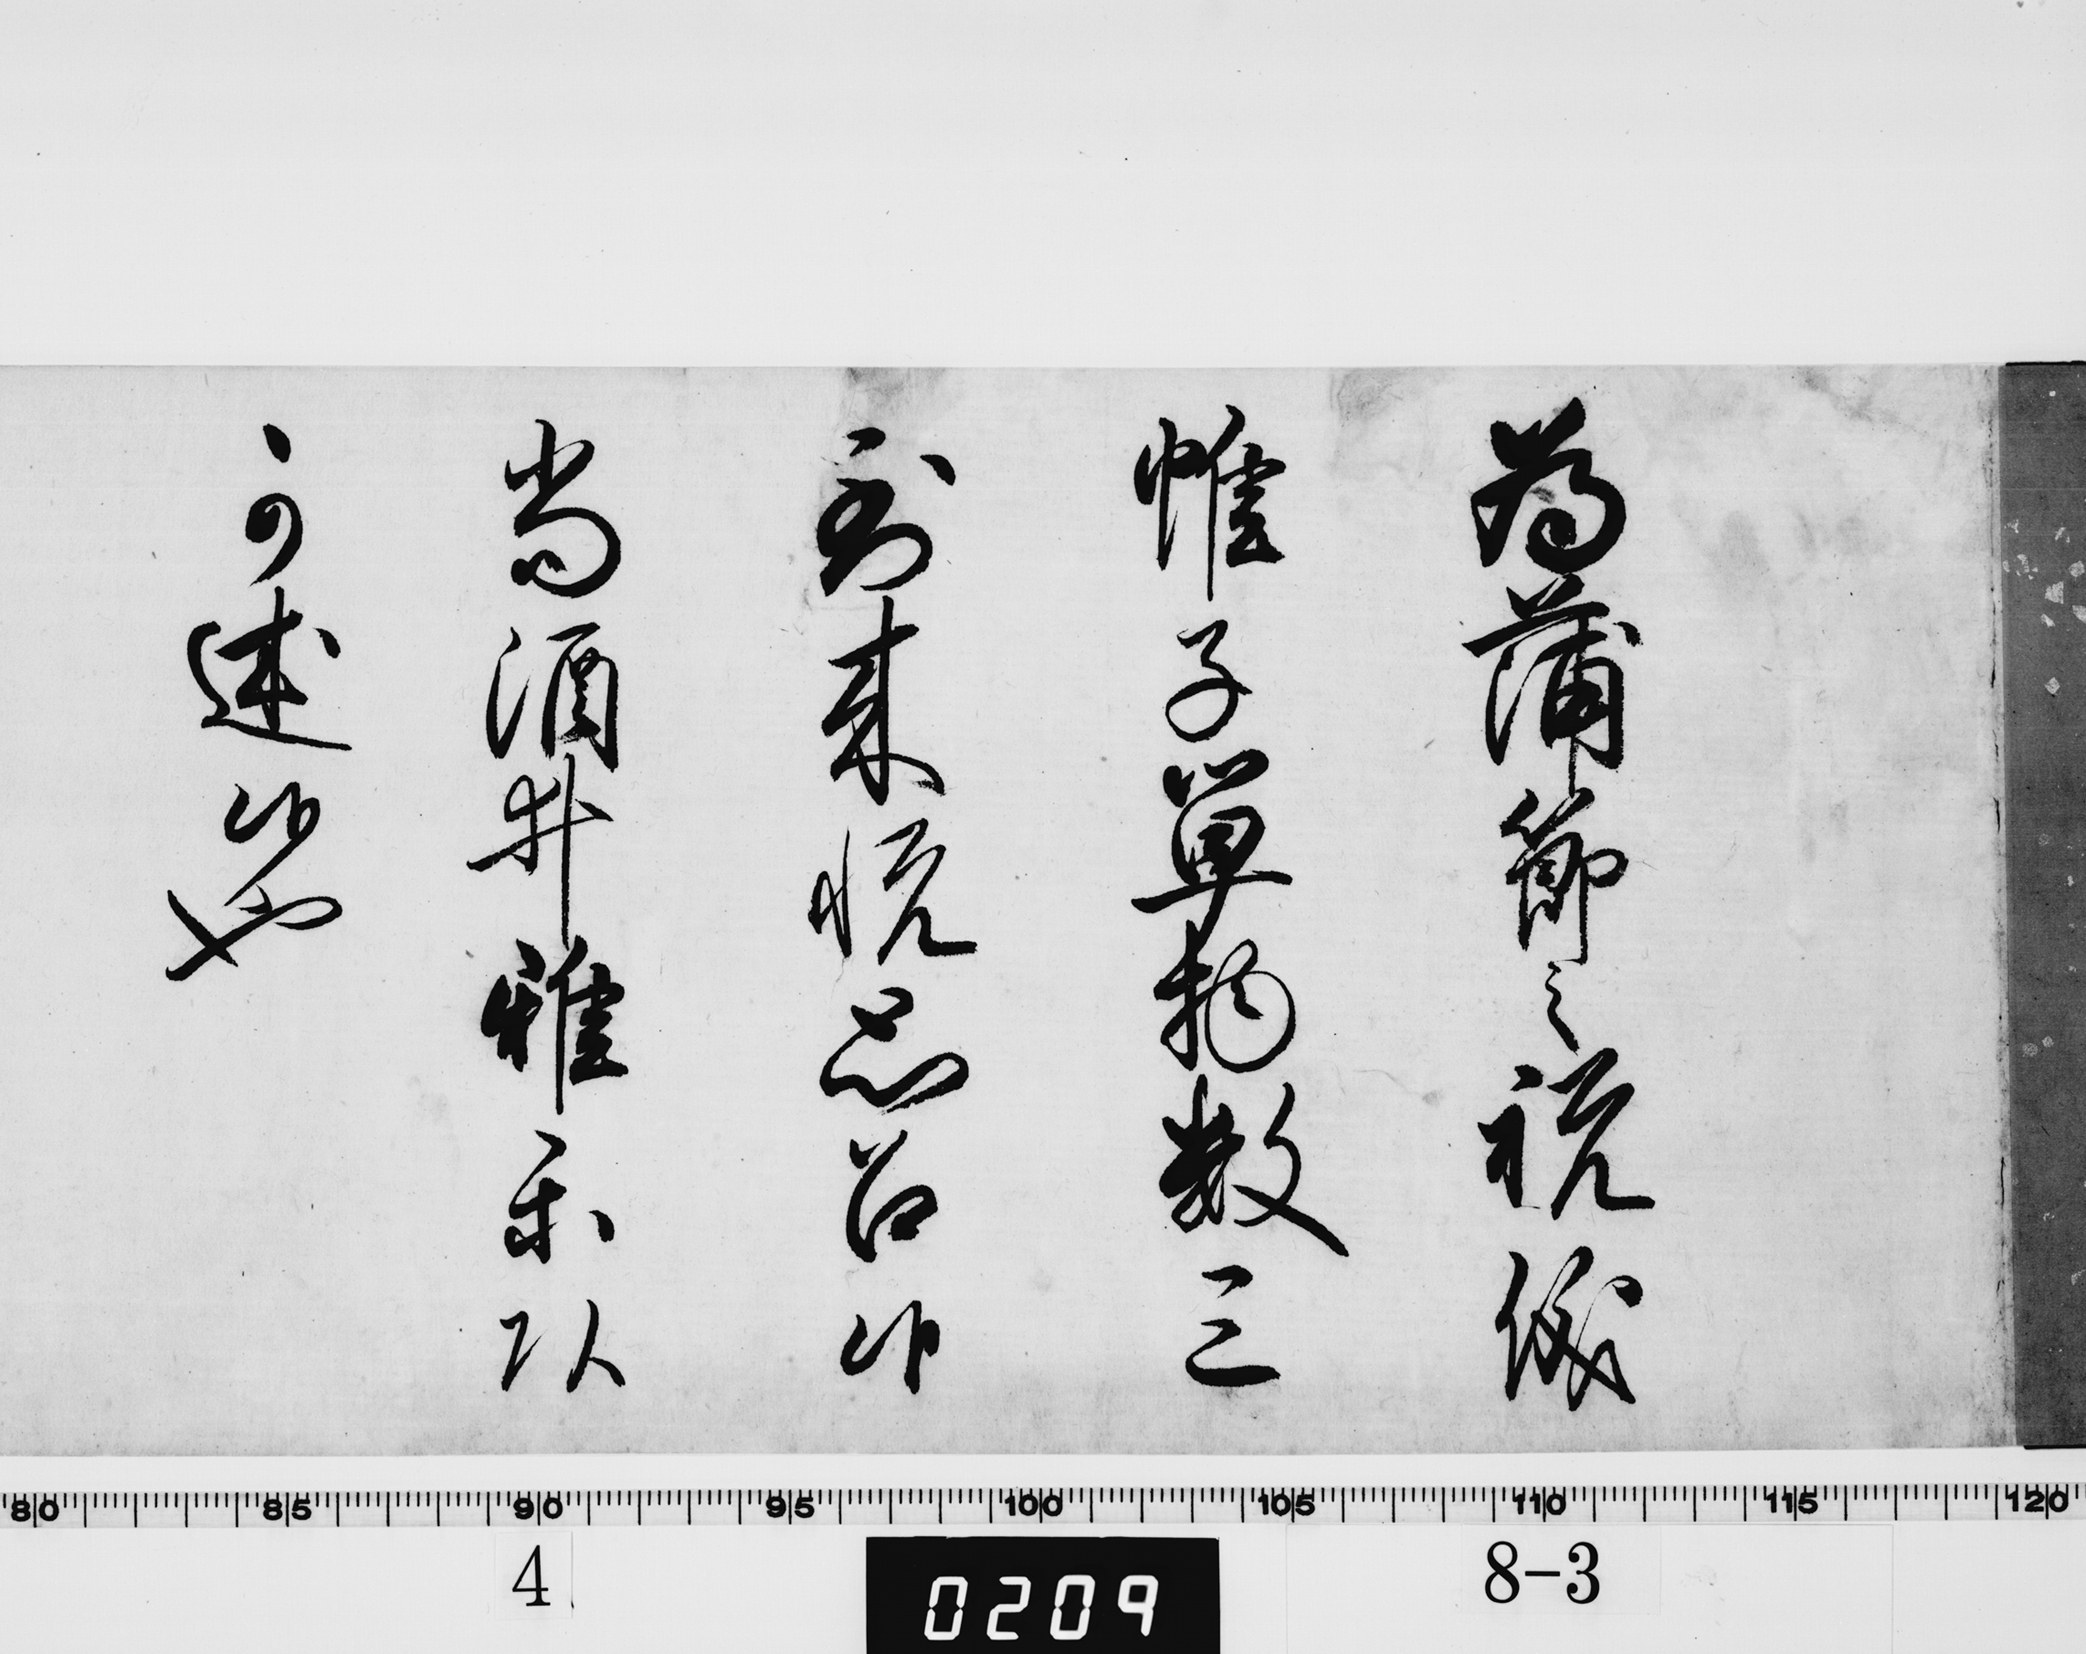 為蒲節之祝儀
帷子單物数三
到来悦思召候
尚酒井雅楽頭
可述候也
80 85 90 95 100 105 110 115 120
4
0209
8-3